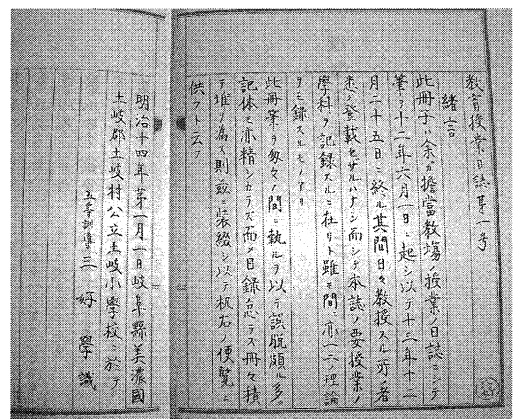 教育授業日誌第一号
緒言
此冊子ハ余ガ擔當教塲ノ授業ノ日誌ニシテ
筆ヲ十二年六月一日ニ起シ以テ十三年十二
月二十五日ニ終ル其間日々教授スル所ノ者
悉ク登載セザルハナシ而シテ本誌ノ要授業ノ
學科ヲ記録スルニ在リト雖モ間亦一二ノ理論
ヲモ録スルモノアリ
此冊筆ヲ匆々ノ間ニ執ルヲ以テ誤脱頗ル多ク
記体モ亦精シカラズ而メ目録
テ堆ヲ為ス則茲ニ装綴シ以テ机右ノ便覧ニ
供フト云フ
明治十四年第一月一日岐阜縣美濃國
土岐郡土岐村公立土岐小學校ニ於テ
五等訓導三好學識